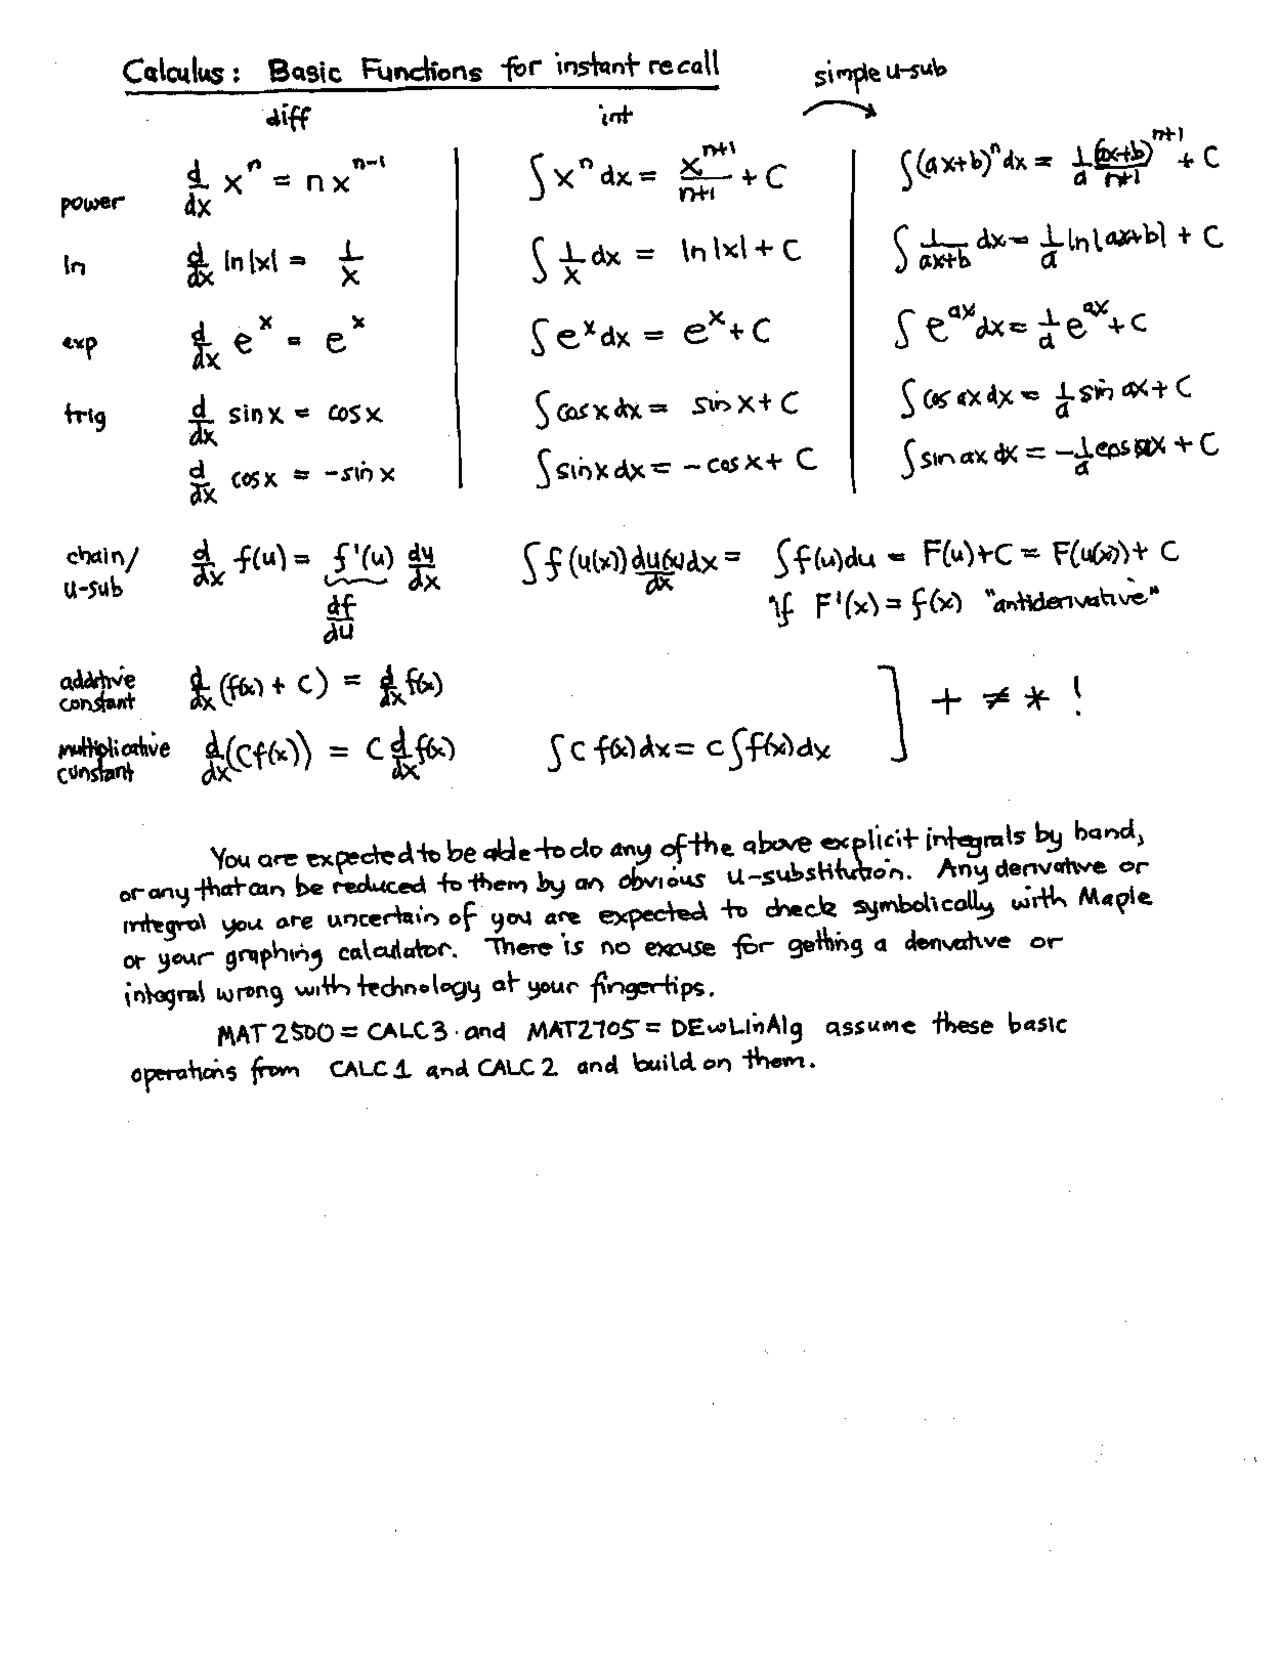 Calculus: Basic Functions for instant recall
simple u-sub
diff int
power d/dx x^n = n x^(n-1) ∫ x^n dx = x^(n+1)/(n+1) + C ∫(ax+b)^n dx = 1/a (ax+b)^(n+1)/(n+1) + C
ln d/dx ln|x| = 1/x ∫ 1/x dx = ln|x| + C ∫ 1/(ax+b) dx = 1/a ln|ax+b| + C
exp d/dx e^x = e^x ∫ e^x dx = e^x + C ∫ e^(ax) dx = 1/a e^(ax) + C
trig d/dx sin x = cos x ∫ cos x dx = sin x + C ∫ cos ax dx = 1/a sin ax + C
d/dx cos x = -sin x ∫ sin x dx = -cos x + C ∫ sin ax dx = -1/a cos ax + C
chain/ u-sub d/dx f(u) = f'(u) du/dx ∫ f(u(x)) du(x)/dx dx = ∫ f(u) du = F(u) + C = F(u(x)) + C
df/du if F'(x) = f(x) "antiderivative"
additive constant d/dx (f(x) + C) = d/dx f(x)
+ ≠ * !
multiplicative constant d/dx (C f(x)) = C d/dx f(x) ∫ C f(x) dx = C ∫ f(x) dx
You are expected to be able to do any of the above explicit integrals by hand,
or any that can be reduced to them by an obvious u-substitution. Any derivative or
integral you are uncertain of you are expected to check symbolically with Maple
or your graphing calculator. There is no excuse for getting a derivative or
integral wrong with technology at your fingertips.
MAT 2500 = CALC 3 and MAT2705 = DEwLinAlg assume these basic
operations from CALC 1 and CALC 2 and build on them.